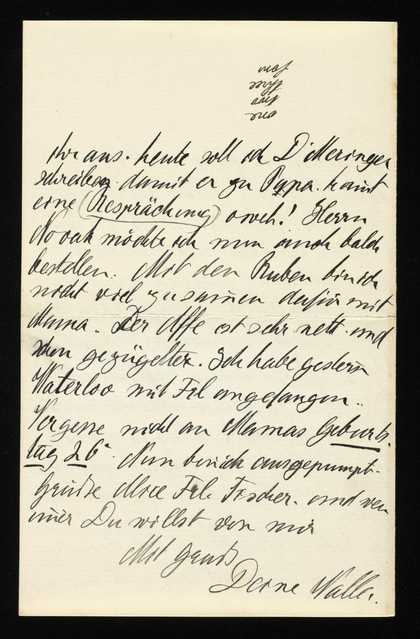 one
two
three
four
ihr aus. heute soll ich Dr Meringer
schreiben damit er zu Papa kommt
eine (Besprächung) oweh! Herrn
Novak möchte ich nun auch bald
bestellen. Mit den Buben bin ich
nicht viel zusamen dafür mit
Mama. Der Affe ist sehr nett und
schon gezügelter. Ich habe gestern
Waterloo mit Frl angefangen.
Vergesse nicht an Mamas Geburts
tag 26. Nun bin ich ausgepumpt.
Grüsse Alice Frl. Fischer und wen
imer Du willst von mir
Mit Gruß
Deine